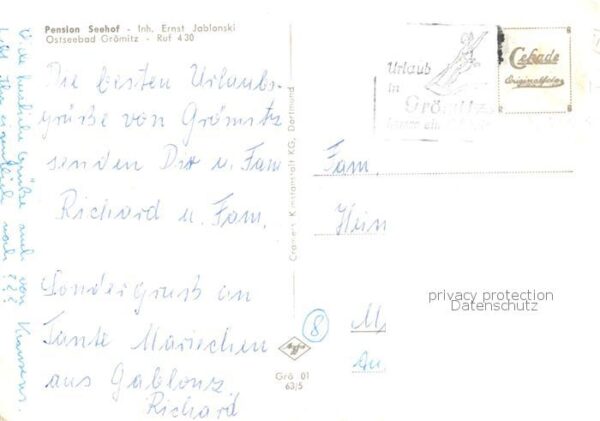 Pension Seehof - Inh. Ernst Jablonski
Ostseebad Grömitz - Ruf 430
Die besten Urlaubs-
grüße von Grömitz
senden Dir u. Fam.
Richard u. Fam.
Sondergruß an
Tante Mariechen
aus Gablonz
Richard
Viele herzliche Grüße auch von Kraussens.
Lebt Ihr eigentlich noch???
Cramers Kunstanstalt KG, Dortmund
Urlaub
in
Grömitz
Cekade
Originalfoto
Fam.
Hein
8
Agfa
Grö 01
63/5
privacy protection
Datenschutz